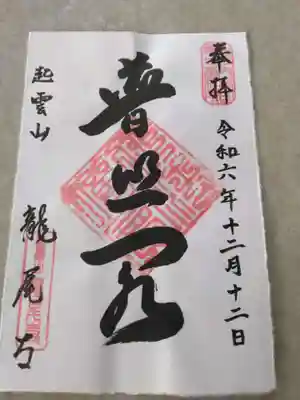 奉拝
令和六年十二月十二日
普照一
起雲山
龍尾寺